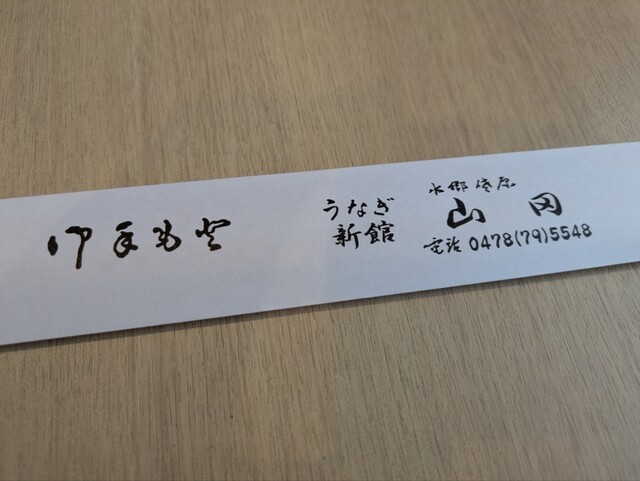 御手もと
うなぎ
新館
水郷佐原
山田
電話 0478(79)5548